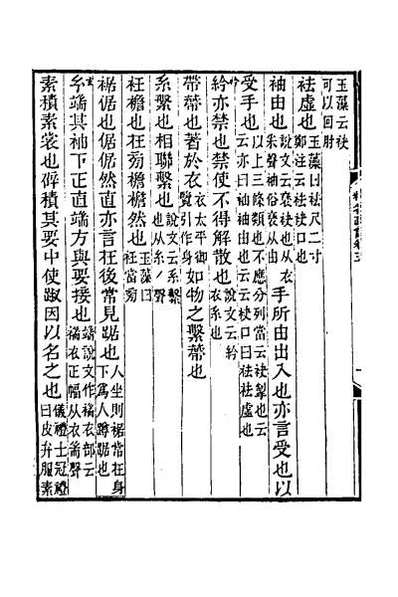 玉藻云袂
可以回肘
袪虛也玉藻曰袪尺二寸
鄭注云袪袂口也
袖由也說文云褎袂也从衣
采聲袖俗褎从由手所由出入也亦言受也以
受手也以上三條類也不應分列當云袂掣也云
云亦曰袖袖由也云云袂口曰袪袪虛也
紟亦禁也禁使不得解散也說文云紟
衣系也
帶蔕也著於衣太平御
覽引作身如物之繫蔕也
系繫也相聯繫也說文云系繫
也从糸丿聲
衽襜也在旁襜襜然也玉藻曰
衽當旁
裾倨也倨倨然直亦言在後常見踞也人坐則裾常在身
下爲人蹲踞也
玄端其袖下正直端方與要接也端說文作褍衣部云
褍衣正幅从衣耑聲
素積素裳也辟積其要中使踧因以名之也儀禮士冠禮
曰皮弁服素